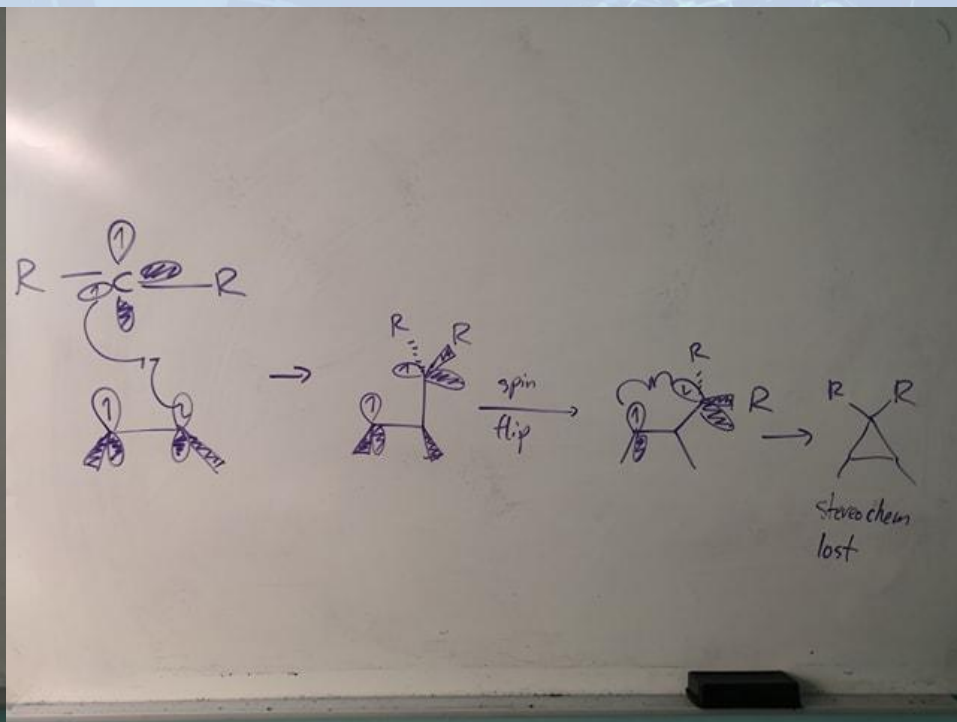 1
R C R
1
1 1
R R
1
1
spin
flip
R
1
1
R
R R
stereochem
lost